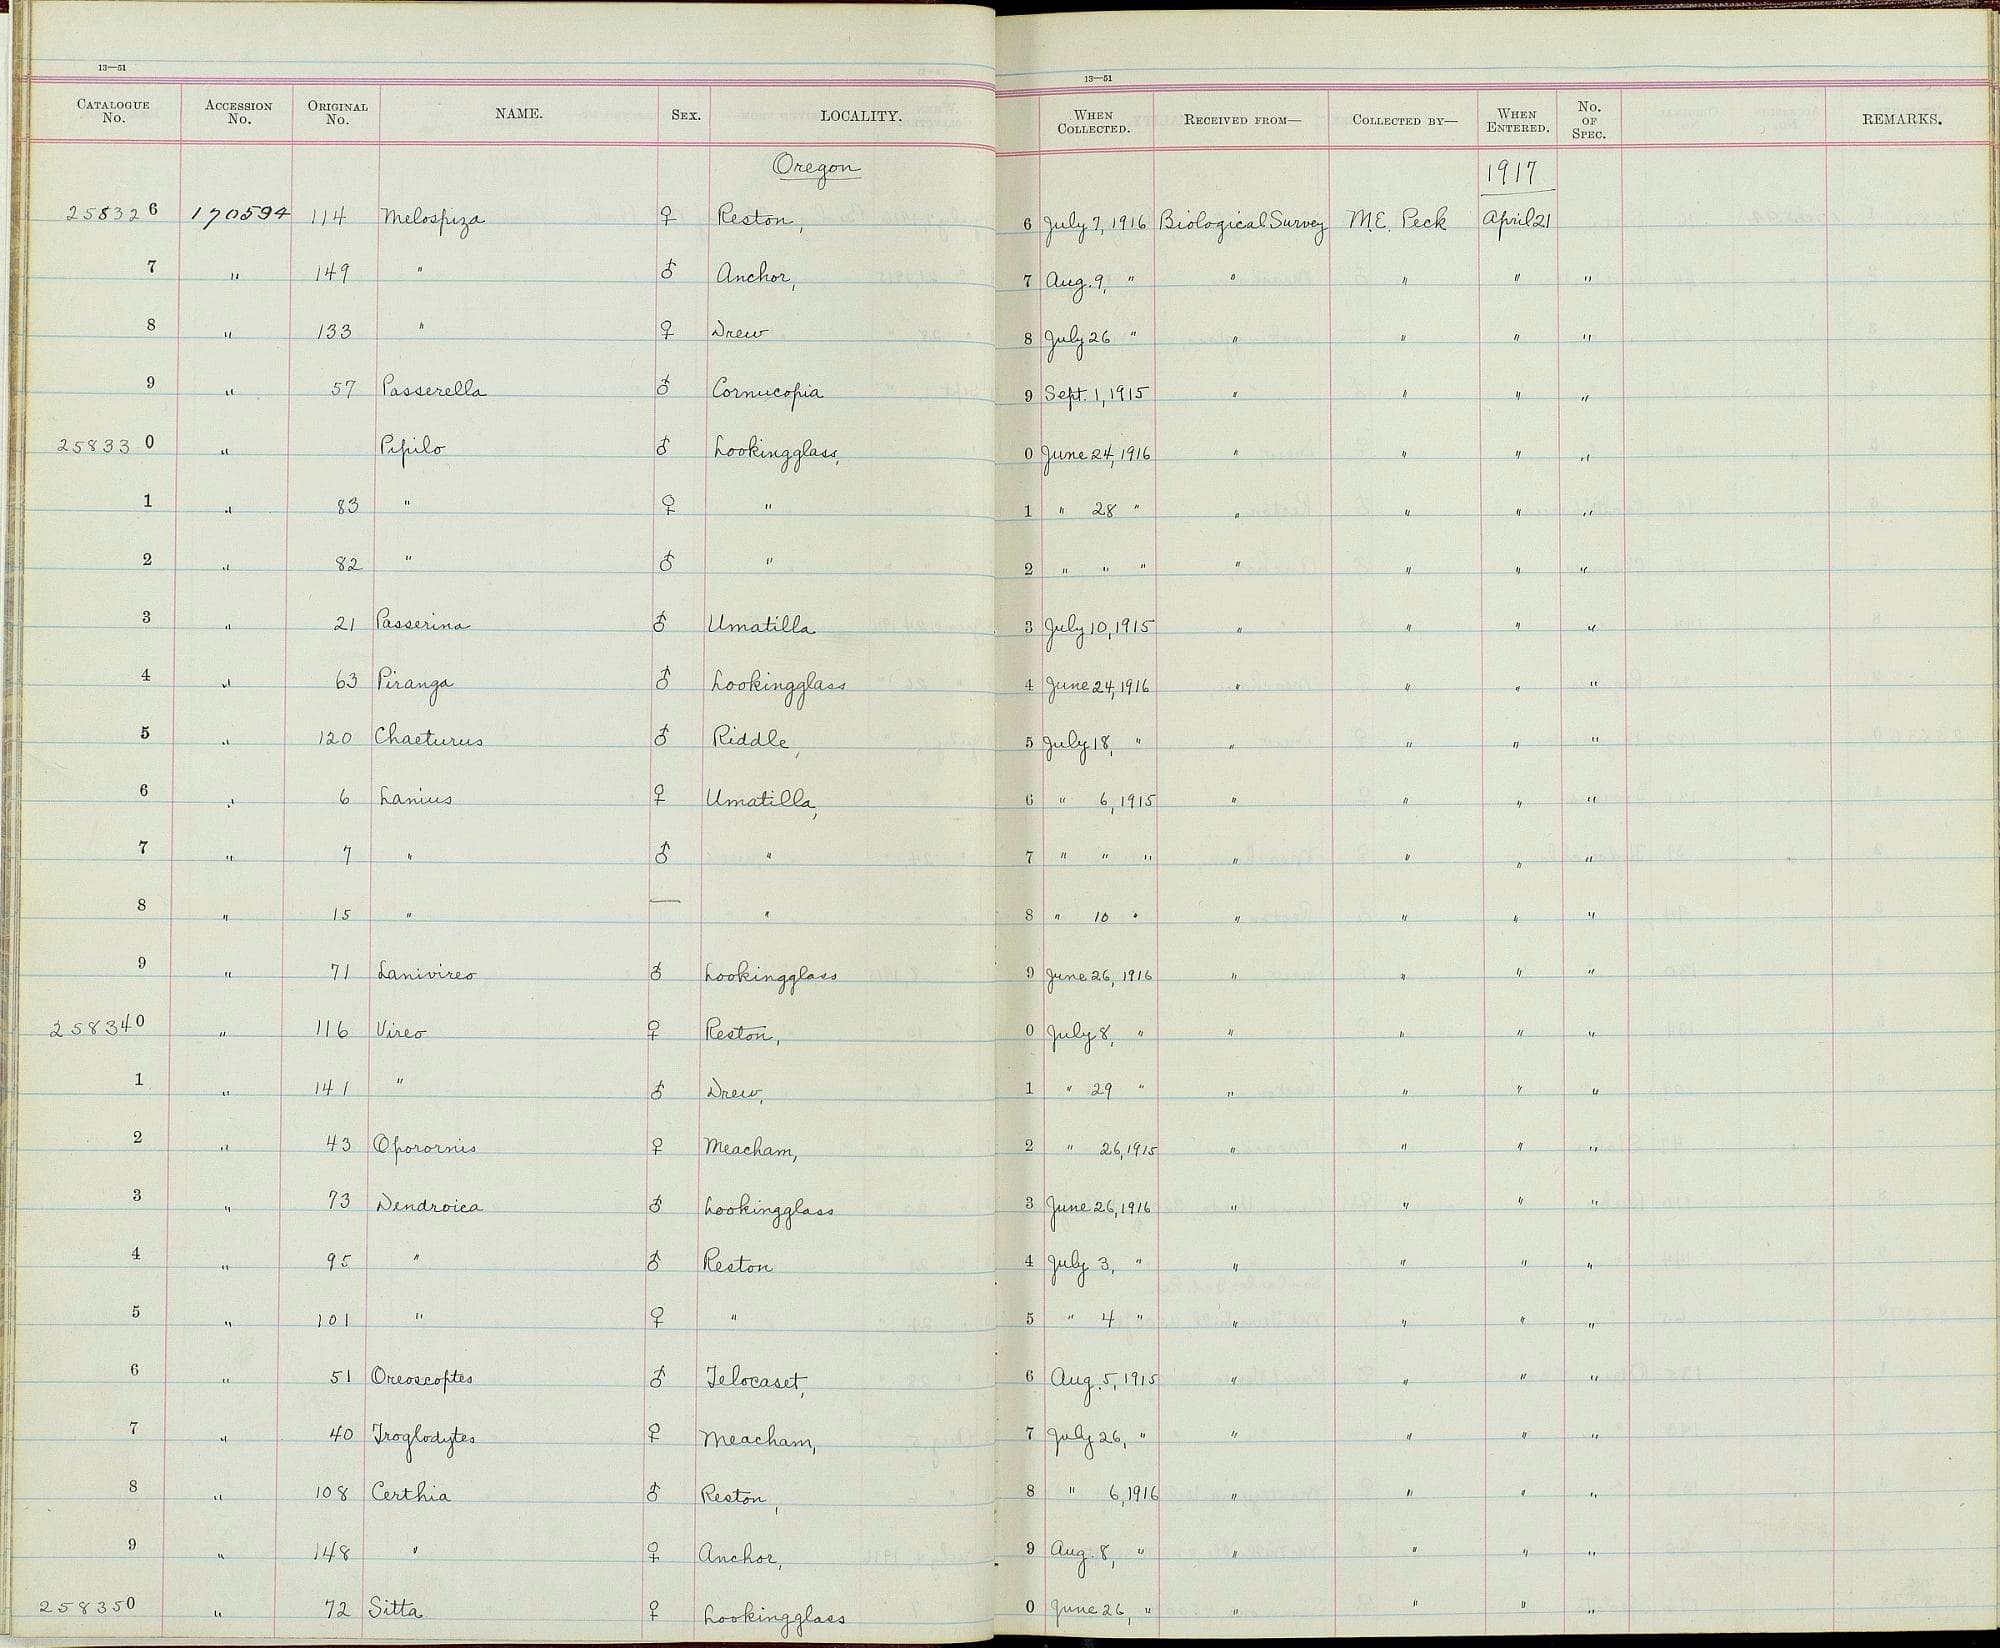 13—51 13—51
CATALOGUE No. ACCESSION No. ORIGINAL No. NAME. SEX. LOCALITY. WHEN COLLECTED. RECEIVED FROM— COLLECTED BY— WHEN ENTERED. No. OF SPEC. REMARKS.
Oregon 1917
258326 170594 114 Melospiza ♀ Reston, 6 July 7, 1916 Biological Survey M.E. Peck April 21
7 " 149 " ♂ Anchor, 7 Aug. 9, " " " " "
8 " 133 " ♀ Drew 8 July 26 " " " " "
9 " 57 Passerella ♂ Cornucopia 9 Sept. 1, 1915 " " " "
258330 " Pipilo ♂ Lookingglass, 0 June 24, 1916 " " " "
1 " 83 " ♀ " 1 " 28 " " " " "
2 " 82 " ♂ " 2 " " " " " " "
3 " 21 Passerina ♂ Umatilla 3 July 10, 1915 " " " "
4 " 63 Piranga ♂ Lookingglass 4 June 24, 1916 " " " "
5 " 120 Chaeturus ♂ Riddle, 5 July 18, " " " " "
6 " 6 Lanius ♀ Umatilla, 6 " 6, 1915 " " " "
7 " 7 " ♂ " 7 " " " " " " "
8 " 15 " — " 8 " 10 " " " " "
9 " 71 Lanivireo ♂ Lookingglass 9 June 26, 1916 " " " "
258340 " 116 Vireo ♀ Reston, 0 July 8, " " " " "
1 " 141 " ♂ Drew, 1 " 29 " " " " "
2 " 43 Oporornis ♀ Meacham, 2 " 26, 1915 " " " "
3 " 73 Dendroica ♂ Lookingglass 3 June 26, 1916 " " " "
4 " 95 " ♂ Reston 4 July 3, " " " " "
5 " 101 " ♀ " 5 " 4 " " " " "
6 " 51 Oreoscoptes ♂ Telocaset, 6 Aug. 5, 1915 " " " "
7 " 40 Troglodytes ♀ Meacham, 7 July 26, " " " " "
8 " 108 Certhia ♂ Reston, 8 " 6, 1916 " " " "
9 " 148 " ♀ Anchor, 9 Aug. 8, " " " " "
258350 " 72 Sitta ♀ Lookingglass 0 June 26, " " " " "